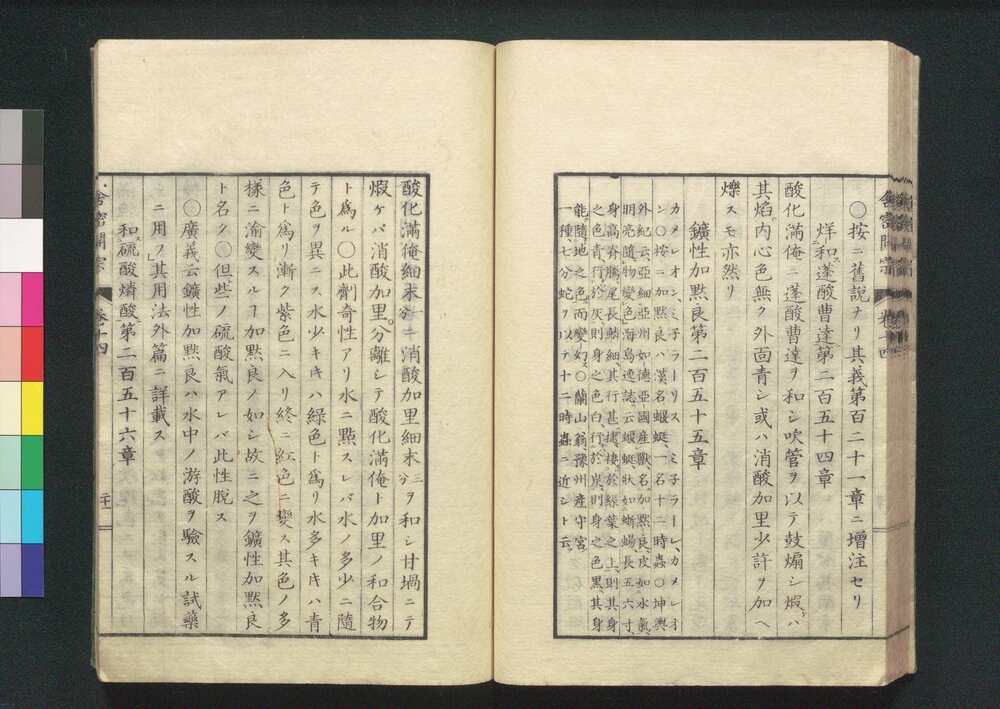 ○按ニ舊説ナリ其義第百二十一章ニ增注セリ
烊和蓬酸曹達第二百五十四章
酸化滿俺ニ蓬酸曹達ヲ和シ吹管ヲ以テ鼓煽シ煆ハ
其焰内心色無ク外面青シ或ハ消酸加里少許ヲ加ヘ
爍スモ亦然リ
鑛性加點良第二百五十五章
カメレオン、ミ子ラーリス、ミ子ラーレ、カメレオ
ン○按ニ加點良ハ漢名蝘蜓、一名十二時蟲○坤輿
外紀云亞細亞州如德亞國産獸、名加點良、皮如水氣、
明亮、隨物變色、海島逸誌云蝘蜓狀如蜥蜴、長五六寸、
身高脊鵬、尾長骽細其行甚捷、棲於綠葉之上、則其身
之色青、行於灰則身之色白、行於炭則身之色黑、其身
能隨地之色而變幻、○蘭山翁豫州産守宮
一種、七分蛇ヲ以テ十二時蟲ニ近シト云、
舍密開宗 卷十四
酸化滿俺細末一分ニ消酸加里細末三分ヲ和シ甘堝ニテ
煆ケバ消酸加里分離シテ酸化滿俺ト加里ノ和合物
ト爲ル○此劑奇性アリ水ニ點スレバ水ノ多少ニ隨
テ色ヲ異ニス水少キキハ綠色ト爲リ水多キキハ青
色ト爲リ漸ク紫色ニ入リ終ニ紅色ニ變ス其色ノ多
樣ニ渝變スルヿ加點良ノ如シ故ニ之ヲ鑛性加點良
ト名ク○但些ノ硫酸氣アレバ此性脱ス
○廣義云鑛性加點良ハ水中ノ游酸ヲ驗スル試藥
ニ用フ其用法外篇ニ詳載ス
和硫酸燐酸第二百五十六章
舍密開宗 卷十四 二十一